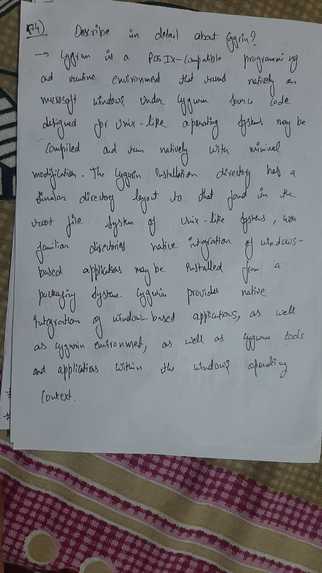 Q4). Describe in detail about Cygwin?
→ Cygwin is a POSIX-Compatible programming
ad runtime environment that runs natively on
microsoft windows. Under Cygwin source code
designed for Unix-like operating systems may be
Compiled and run natively with minimal
modification. The Cygwin installation directory has a
similar directory layout to that found in the
root file system of Unix-like systems, with
familiar directories native integration of windows-
based applications may be installed from a
packaging system. Cygwin provides native
integration of window-based applications, as well
as cygwin environment, as well as cygwin tools
and applications within the windows operating
Context.